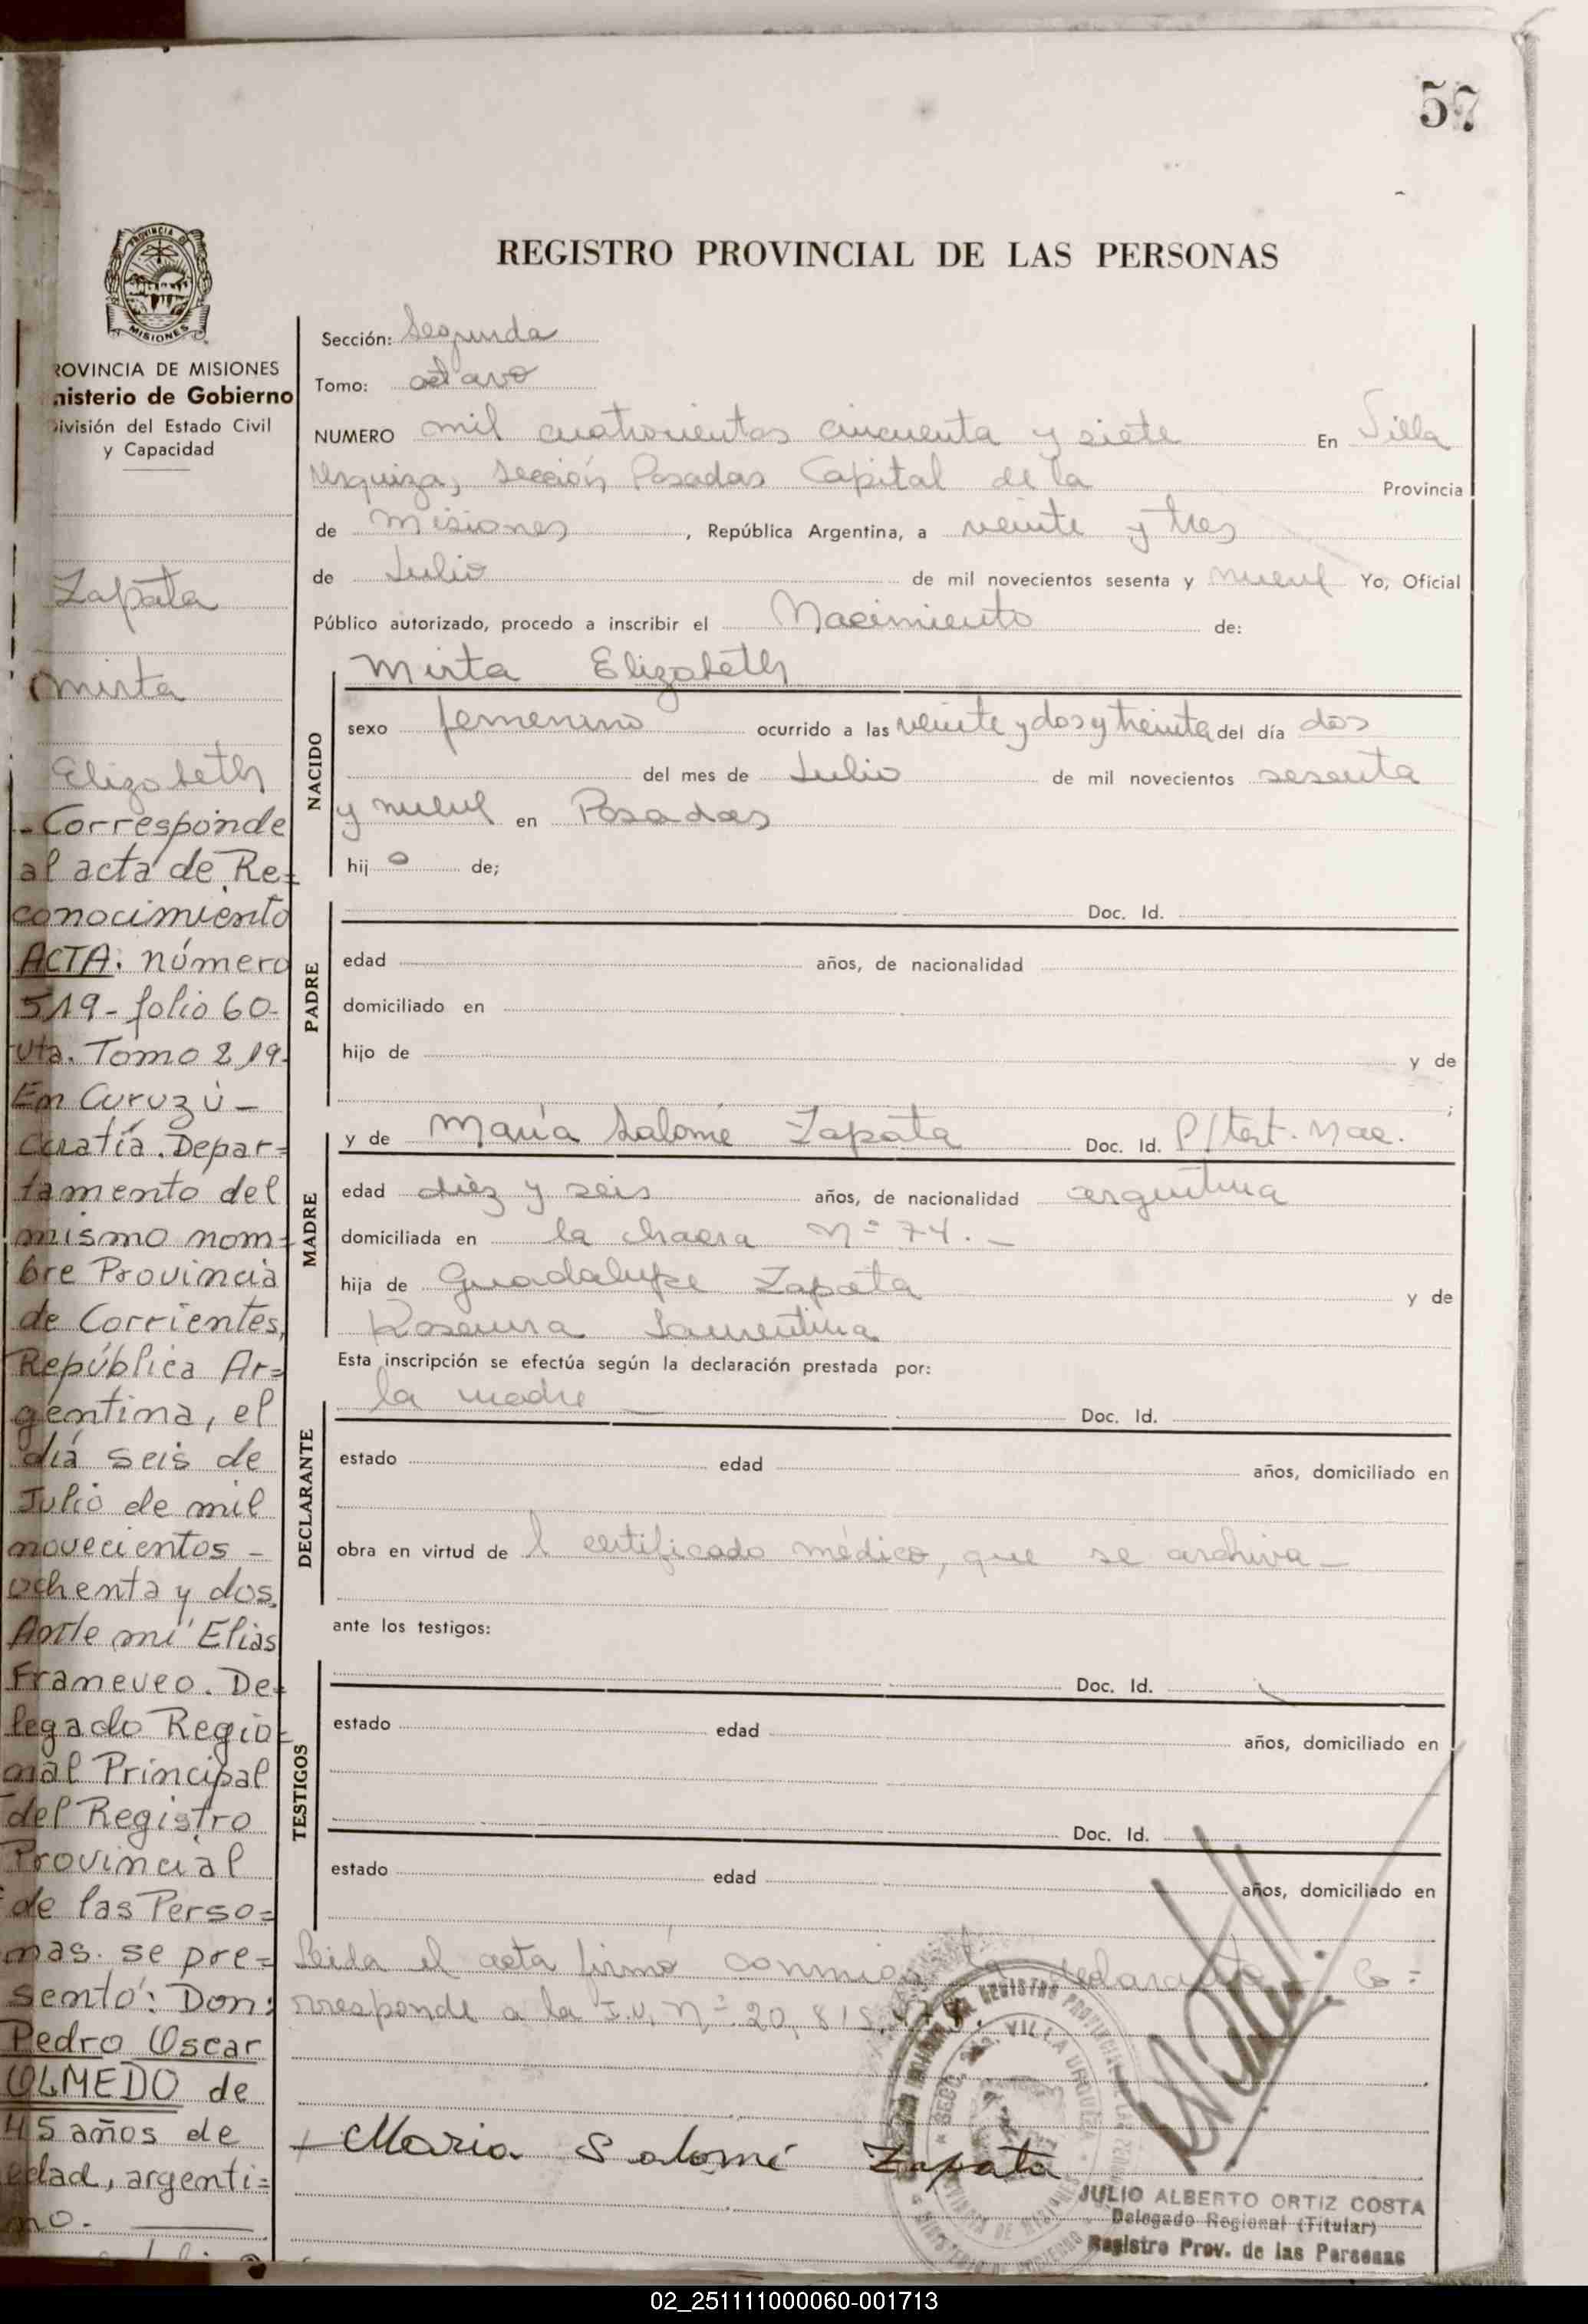 57
REGISTRO PROVINCIAL DE LAS PERSONAS
PROVINCIA DE
MISIONES
ROVINCIA DE MISIONES
nisterio de Gobierno
ivisión del Estado Civil
y Capacidad
Zapata
Mirta
Elizabeth
- Corresponde
al acta de Re=
conocimiento
ACTA: número
519- folio 60-
vta. Tomo 219-
En Curuzú-
Cuatía. Depar=
tamento del
mismo nom=
bre Provincia
de Corrientes,
República Ar=
gentina, el
día seis de
Julio de mil
novecientos -
ochenta y dos.
Ante mí Elias
Frameveo. De=
legado Regio=
nal Principal
del Registro
Provincial
de las Perso=
nas. se pre=
sentó: Don:
Pedro Oscar
OLMEDO de
45 años de
edad, argenti=
no.
Sección: Segunda
Tomo: octavo
NUMERO mil cuatrocientos cincuenta y siete En Villa
Urquiza, sección Posadas Capital de la Provincia
de Misiones, República Argentina, a veinte y tres
de Julio de mil novecientos sesenta y nueve Yo, Oficial
Público autorizado, procedo a inscribir el Nacimiento de:
NACIDO
Mirta Elizabeth
sexo femenino ocurrido a las veinte y dos y treinta del día dos
del mes de Julio de mil novecientos sesenta
y nueve en Posadas
hij a de;
PADRE
Doc. Id.
edad años, de nacionalidad
domiciliado en
hijo de y de
;
MADRE
y de María Salomé Zapata Doc. Id. P/tert. Nac.
edad diez y seis años, de nacionalidad argentina
domiciliada en la chacra Nº 74.-
hija de Guadalupe Zapata y de
Rosaura Laurentina
Esta inscripción se efectúa según la declaración prestada por:
DECLARANTE
la madre Doc. Id.
estado edad años, domiciliado en
obra en virtud de l certificado médico, que se archiva-
ante los testigos:
TESTIGOS
Doc. Id.
estado edad años, domiciliado en
Doc. Id.
estado edad años, domiciliado en
Leida el acta firmó conmigo la declarante - Co=
rresponde a la I.U. Nº 20,815,
Maria Salomé Zapata
JULIO ALBERTO ORTIZ COSTA
Delegado Regional (Titular)
Registro Prov. de las Personas
02_251111000060-001713